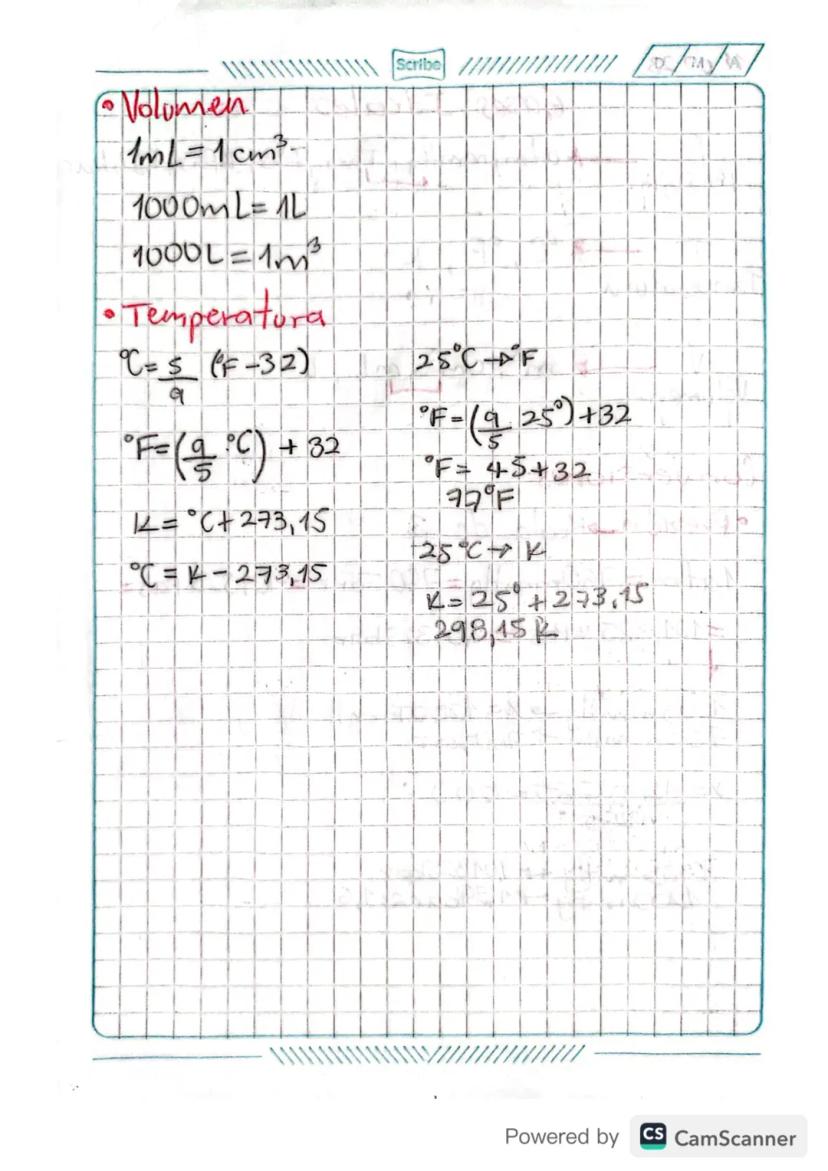 Scribe
• Volumen
1mL = 1 cm³
1000mL = 1L
1000L = 1m³
• Temperatura
°C = 5/9 (°F - 32)
°F = (9/5 °C) + 32
K = °C + 273,15
°C = K - 273,15
25°C → °F
°F = (9/5 25°) + 32
°F = 45 + 32
77°F
25°C → K
K = 25° + 273,15
298,15 K
Powered by CS CamScanner